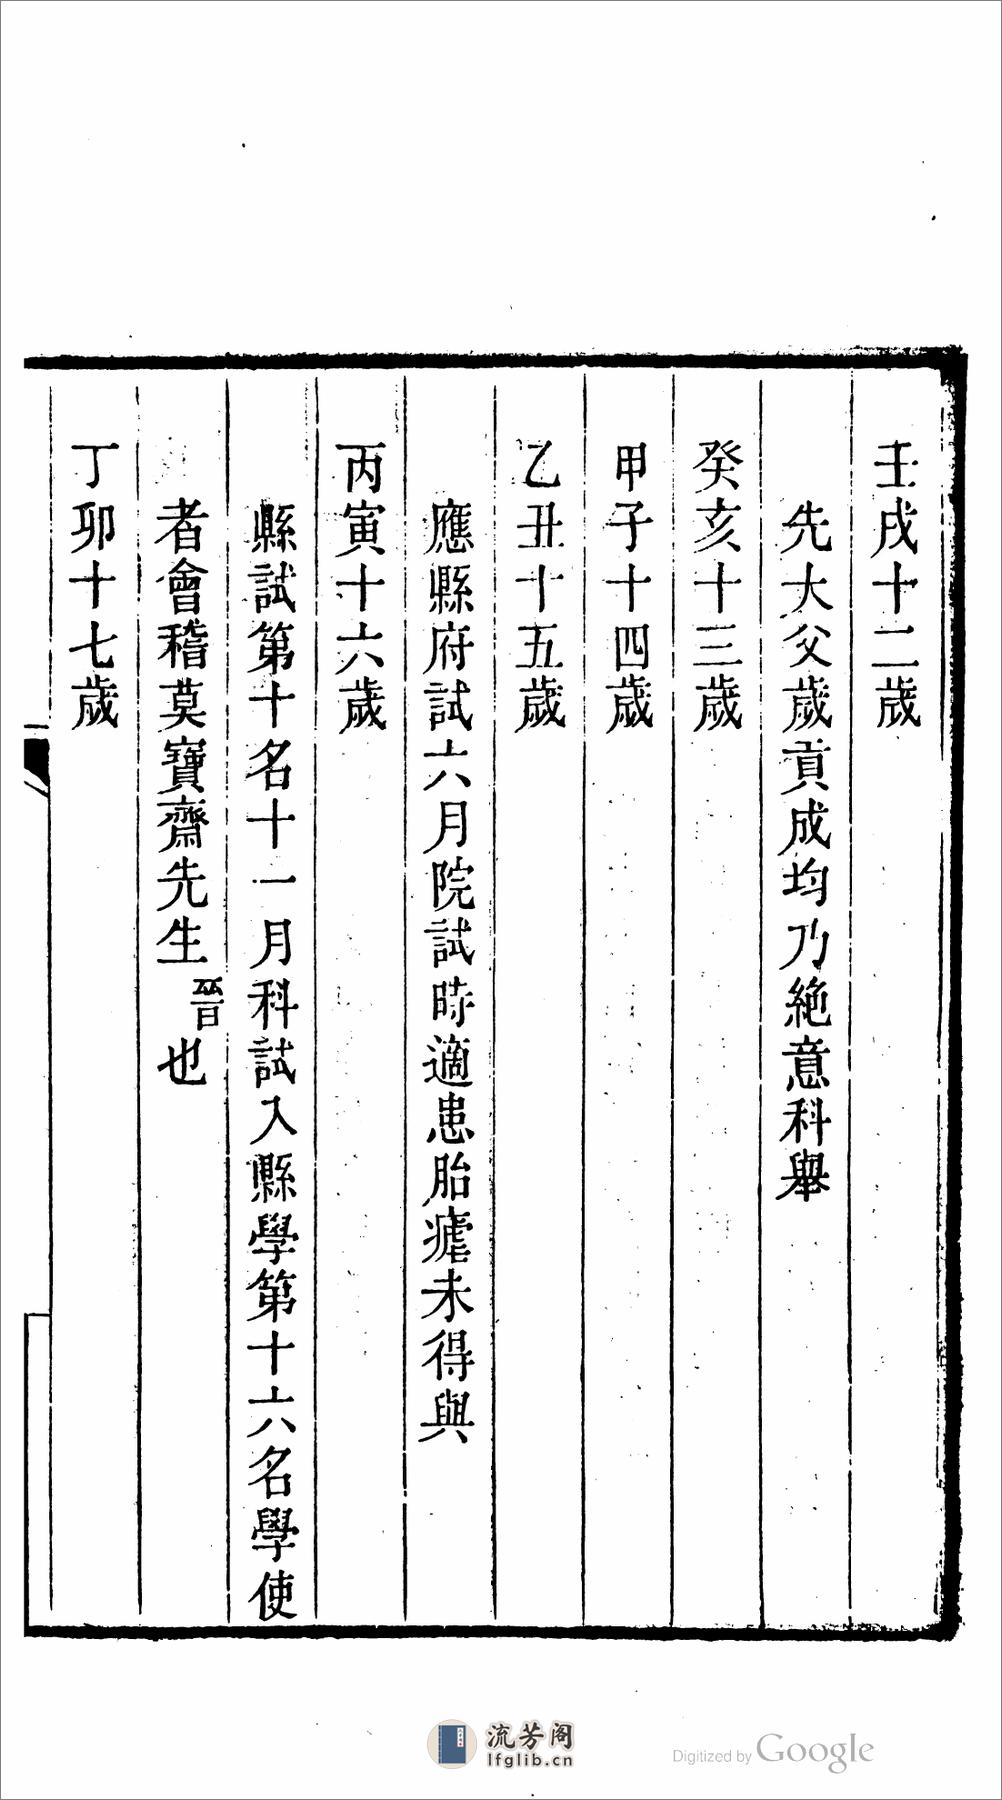 壬戌十二歲
先大父歲貢成均乃絶意科舉
癸亥十三歲
甲子十四歲
乙丑十五歲
應縣府試六月院試時適患胎瘧未得與
丙寅十六歲
縣試第十名十一月科試入縣學第十六名學使
者會稽莫寶齋先生晉也
丁卯十七歲
流芳阁
lfglib.cn
Digitized by Google